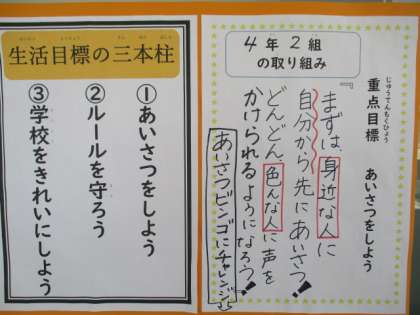 生活目標の三本柱
①あいさつをしよう
②ルールを守ろう
③学校をきれいにしよう
4年2組
の取り組み
重点目標
じゅうてんもくひょう
あいさつをしよう
『まずは、身近な人に
自分から先にあいさつ!
どんどん、色んな人に声を
かけられるようになろう!
あいさつビンゴにチャレンジ